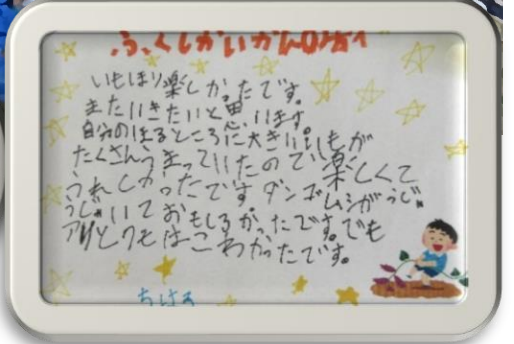 ふくしかいかんのみなさんへ
いもほり楽しかったです。
またいきたいと思います。
自分のほるところに大きいいもが
たくさんうまっていたので楽しくて
うれしかったです ダンゴムシがうじゃ
うじゃいておもしろかったです。でも
アリとクモはこわかったです。
ちはる